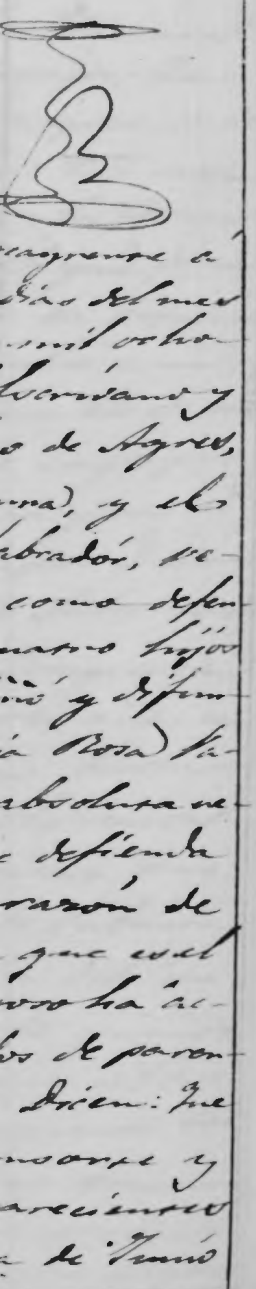 á
dias del mes
mil ocho-
Escrivano y
o de Agres,
, y el
abrador, ve-
como defen-
uatro hijos
y difun-
a Rosa) Va-
absoluta ne-
defienda
razón de
que es el
ha ac-
los de paren-
Dicen: Que
nsorte y
arecientes
a de Junio